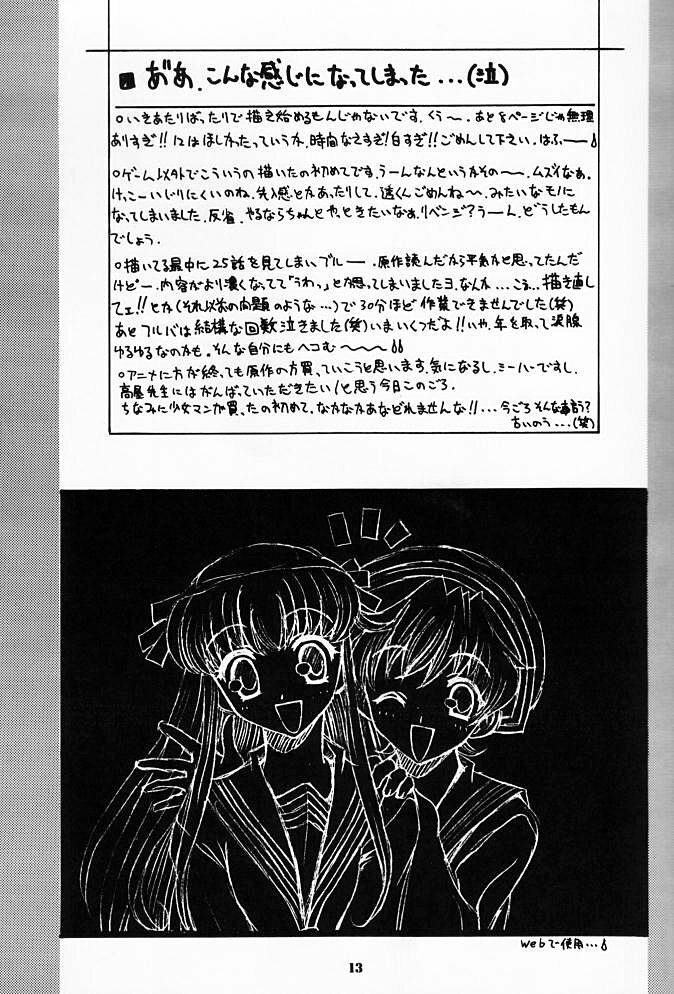 あ゛あ、こんな感じになってしまった...(泣)
○いきあたりばったりで描き始めるもんじゃないです。くぅ〜。あと8ページじゃ無理
ありすぎ!!12はほしかったっていうか、時間なさすぎ!白すぎ!!ごめんして下さい。はふ——
○ゲーム以外でこういうの描いたの初めてです。うーんなんというかその〜。ムズイなぁ。
けっこーいじりにくいのね。先入感とかあったりして。透くんごめんね〜。みたいなモノに
なってしまいました。反省。やるならちゃんとやっときたいなぁ。リベンジ?うーん、どうしたもん
でしょう。
○描いてる最中に25話を見てしまいブルー 原作読んだから平気かと思ってたんだ
けどー、内容がより濃くなってて「うわっ」とか思ってしまいましたヨ。なんか...こう...描き直し
てェ!!とか(それ以前の問題のような...)で30分ほど作業できませんでした(笑)
あとフルバは結構な回数泣きました(笑)いまいくつだよ!!いや、年を取って涙腺
ゆるゆるなのかも。そんな自分にもヘコむ〜
○アニメに方が終っても原作の方買っていこうと思います。気になるし。ミーハーですし。
高屋先生にはがんばっていただきたい!と思う今日このごろ。
ちなみに少女マンガ買ったの初めて。なかなかあなどれませんな!!...今ごろそんな事言う?
ちいのう...(笑)
Webで使用...
13